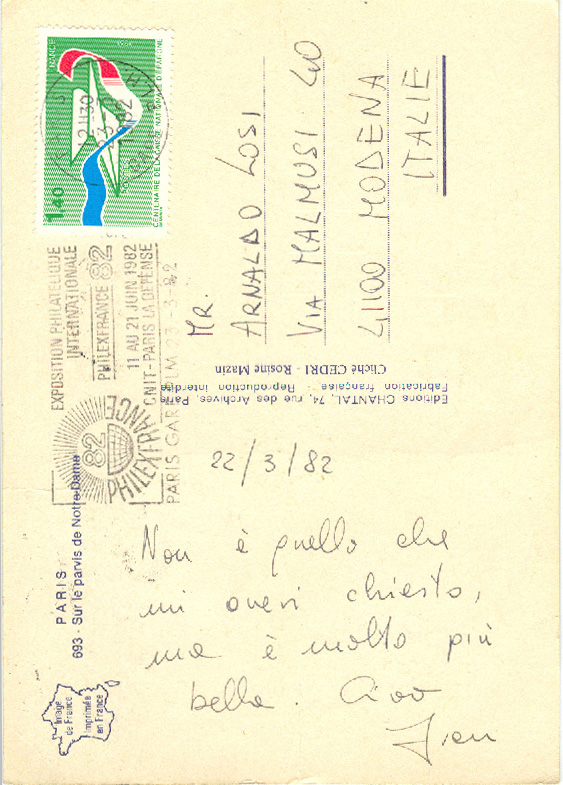 PARIS
693 - Sur le parvis de Notre-Dame
Image
de France
Imprimée
en France
22/3/82
Non è quello che
mi avevi chiesto,
ma è molto più
bella. Ciao
Editions CHANTAL, 74, rue des Archives, Paris
Fabrication française - Reproduction interdite
Cliché CEDRI - Rosine Mazin
EXPOSITION PHILATELIQUE
INTERNATIONALE
PHILEXFRANCE 82
11 AU 21 JUIN 1982
CNIT-PARIS LA DEFENSE
PHILEXFRANCE
82
PARIS GARE LM 23-3-82
FRANCE
1,40
CENTENAIRE DE LA CAISSE NATIONALE D'EPARGNE
12H30
23-3
1982
MR.
ARNALDO LOSI
VIA MALMUSI 40
41100 MODENA
ITALIE